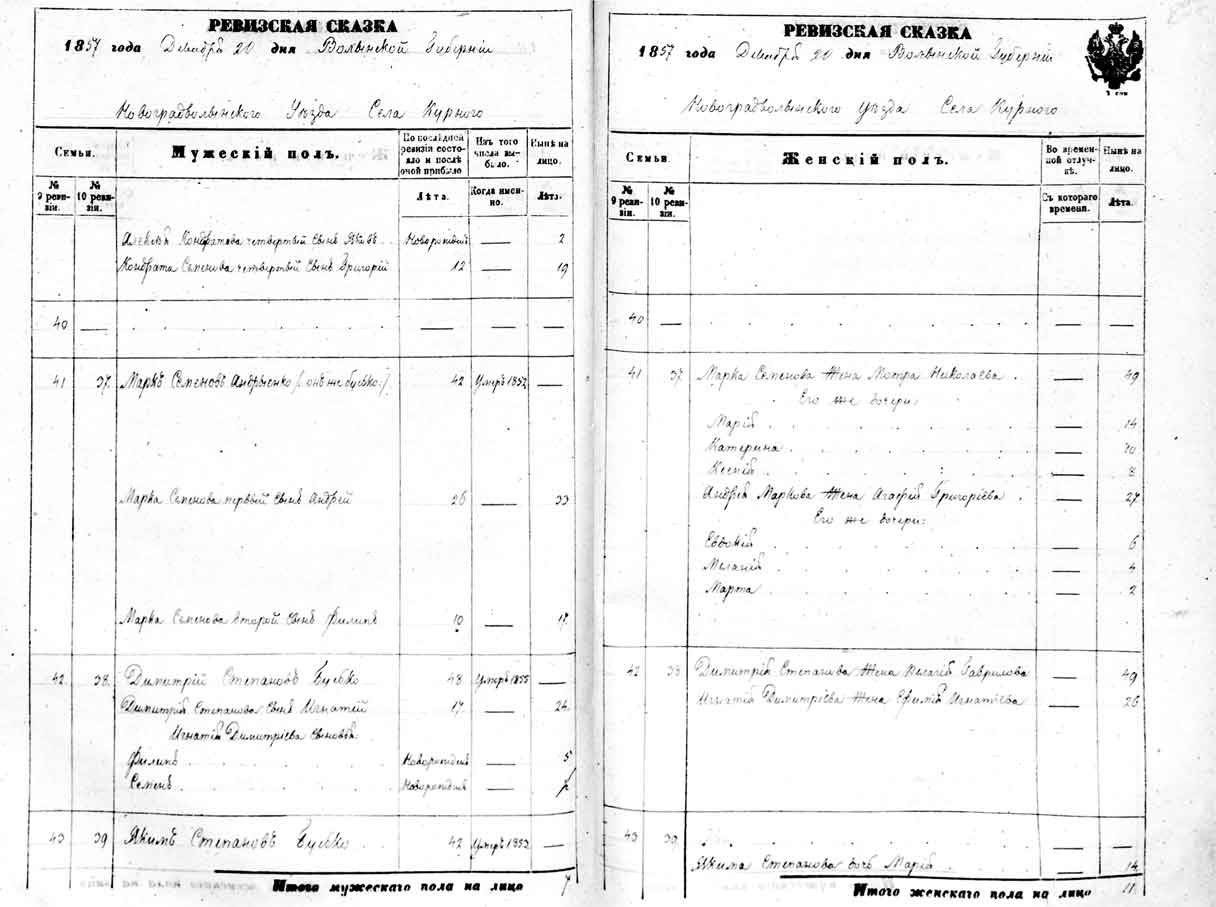 РЕВИЗСКАЯ СКАЗКА
1857 года Декабря 20 дня Волынской Губерніи
Новоградволынского Уѣзда Села Курного
Семьи.
Мужескій полъ.
По послѣдней ревизіи состояло и послѣ оной прибыло
Изъ того числа выбыло.
Нынѣ на лицо.
№ 9 ревизіи.
№ 10 ревизіи.
Лѣта.
Когда именно.
Лѣта.
Алексѣя Кондратова четвертый сынъ Яковъ новорожден — 2
Кондрата Семенова четвертый сынъ Григорій 12 — 19
40 — — — —
41 37 Маркъ Семеновъ Андрыенко /: онъ же Бубько :/ 42 Умеръ 1852 —
Марка Семенова первый сынъ Андрей 26 — 33
Марка Семенова второй сынъ Филипъ 10 — 17
42 38 Димитрій Степановъ Бубько 48 Умеръ 1855 —
Димитрія Степанова сынъ Игнатій 17 — 24
Игнатія Димитріева сыновья:
Филипъ Новорожден — 5
Семенъ Новорожден —
43 39 Якимъ Степановъ Бубько 42 Умеръ 1853 —
Итого мужескаго пола на лицо 7
РЕВИЗСКАЯ СКАЗКА
1857 года Декабря 20 дня Волынской Губерніи
Новоградволынского уѣзда Села Курного
Семьи.
Женскій полъ.
Во временной отлучкѣ.
Нынѣ на лицо.
№ 9 ревизіи.
№ 10 ревизіи.
Съ котораго времени.
Лѣта.
40 — — —
41 37 Марка Семенова жена Мотра Николаева — 49
Его же дочери:
Марія — 14
Катерина — 10
Ксенія — 8
Андрея Маркова жена Агафія Григоріева — 27
Его же дочери:
Евдокія — 6
Меланія — 4
Марта — 2
42 38 Димитрія Степанова жена Пелагія Гаврилова — 49
Игнатія Димитріева жена Ефимія Игнатіева — 26
43 39 — —
Якима Степанова дочь Марія — 14
Итого женскаго пола на лицо 11